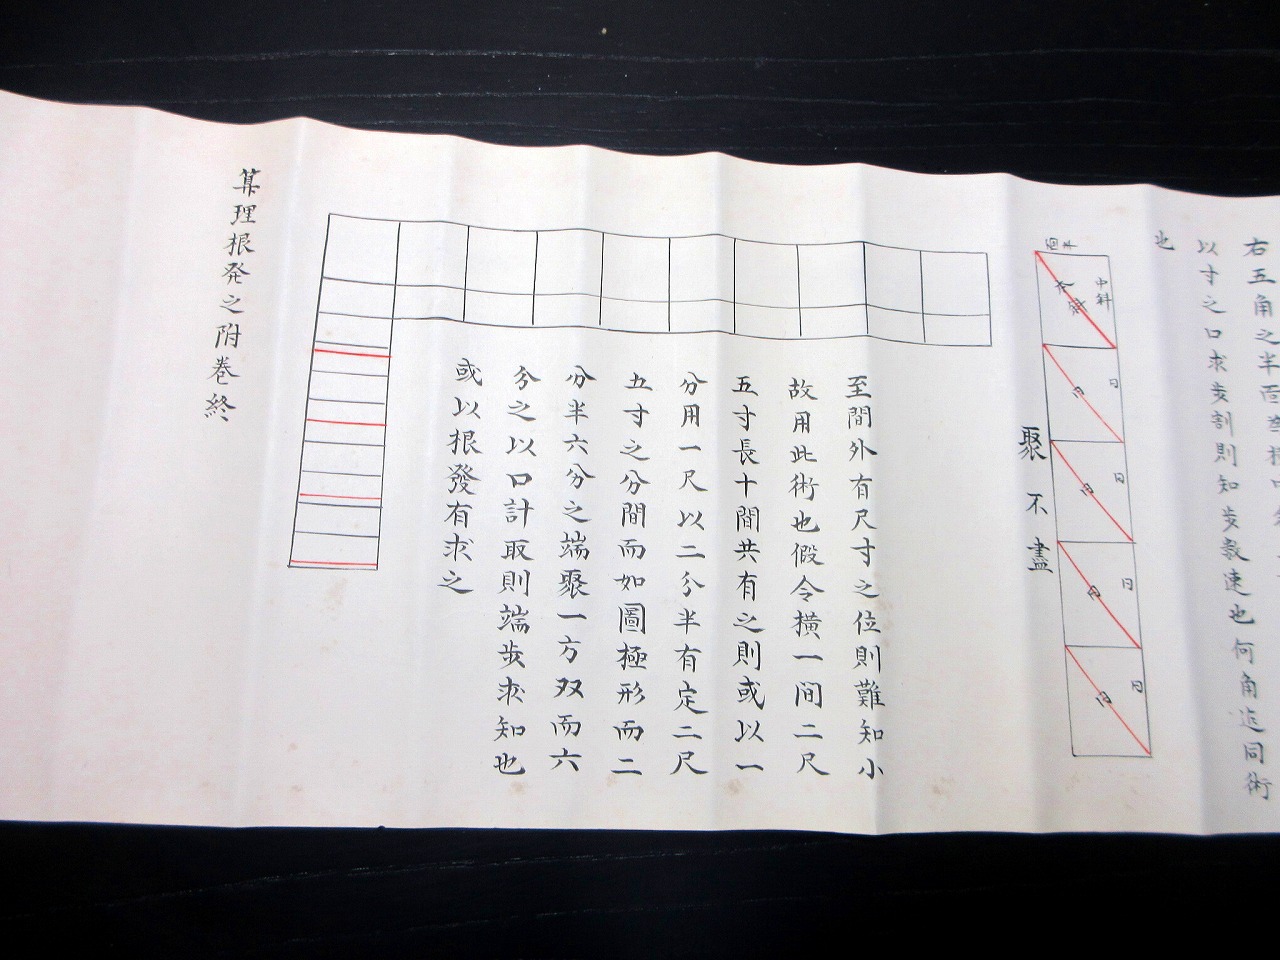 右五角之半面
以寸之口求歩割則知歩数速也何角追同術
也
中斜
聚不盡
至間外有尺寸之位則難知小
故用此術也假令横一间二尺
五寸長十間共有之則或以一
分用一尺以二分半有定二尺
五寸之分間而如圖極形而二
分半六分之端聚一方双而六
分之以口計取則端歩求知也
或以根發有求之
算理根発之附巻終